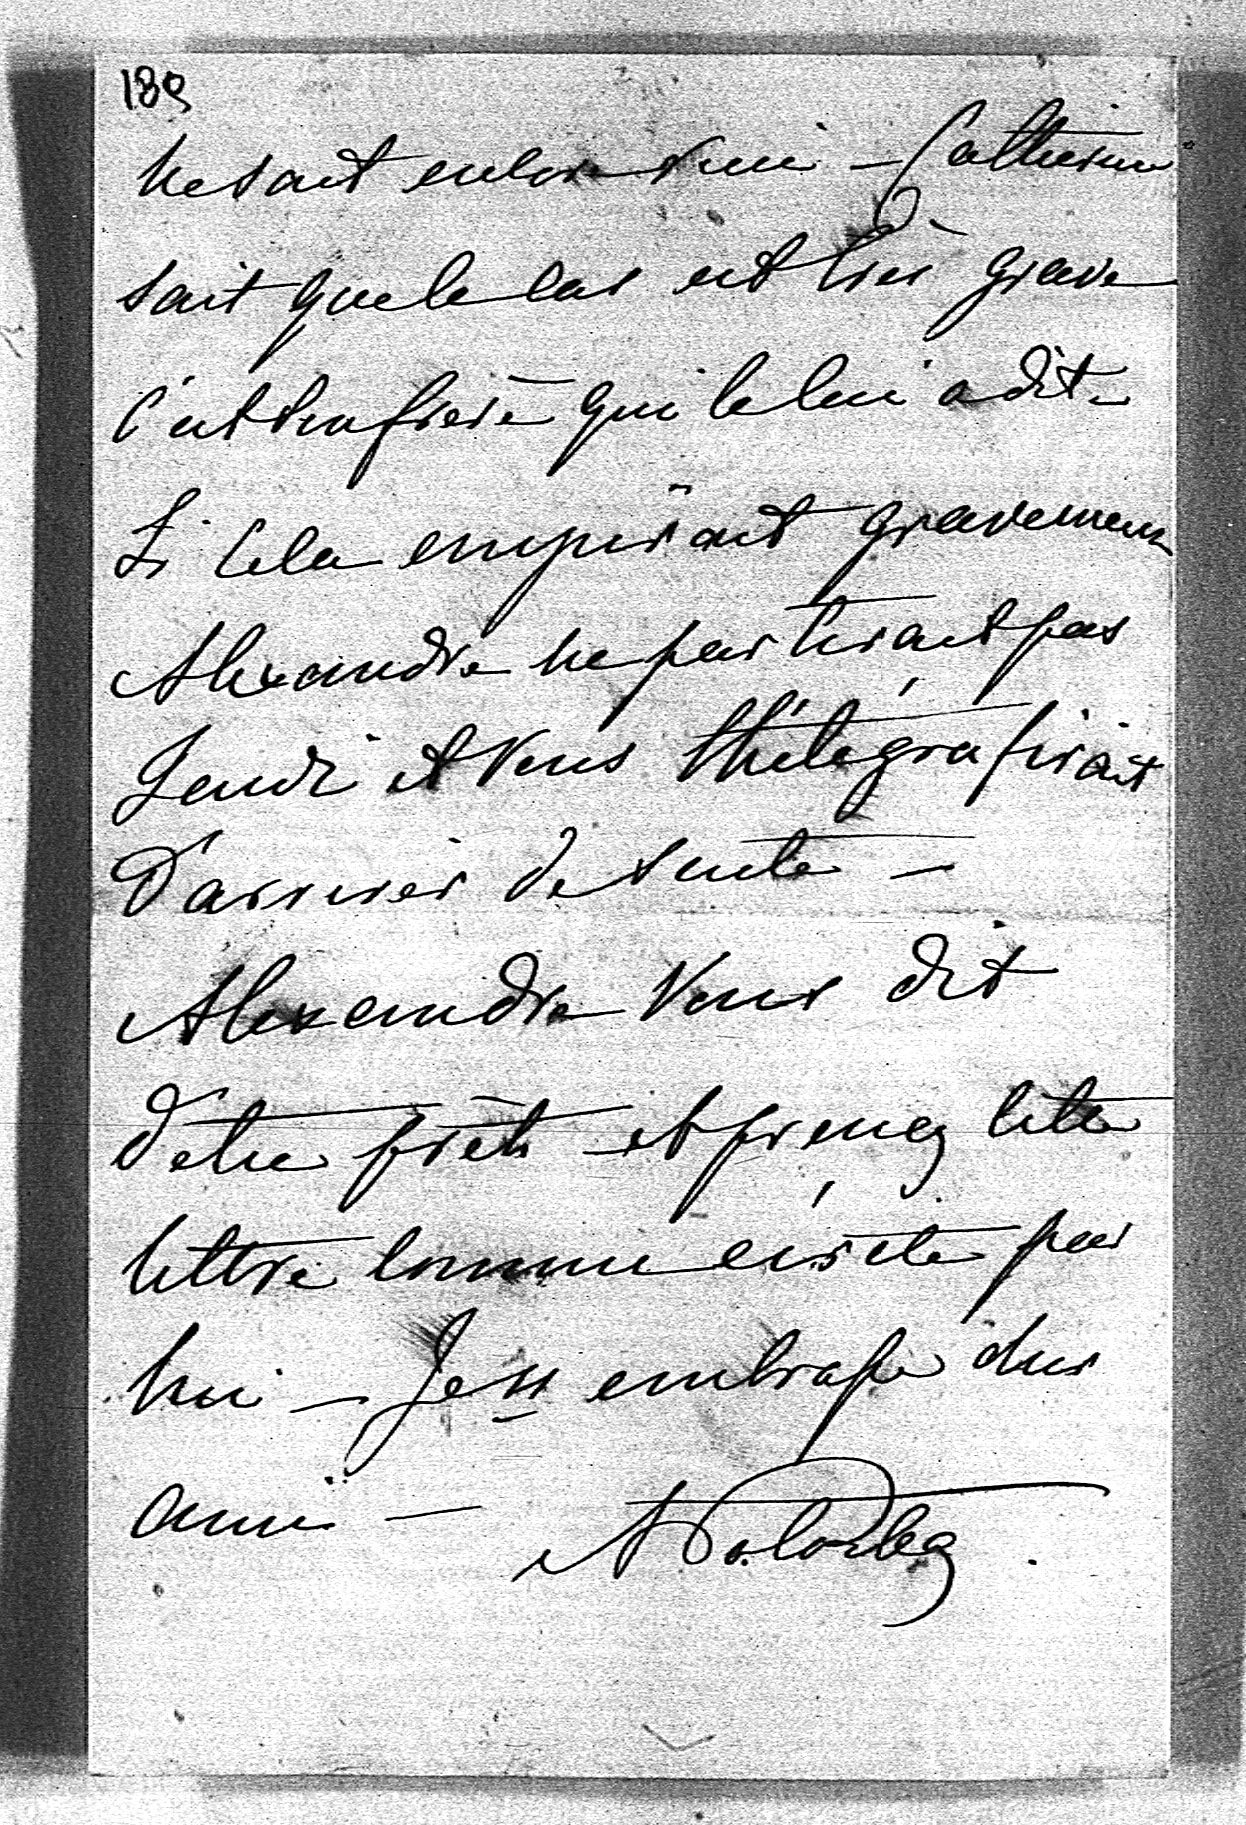 189
ne sait encore rien – Catherine
sait que le cas est très grave
c'est son frère qui le lui a dit –
Si cela empirait gravement
Alexandre ne partirait pas
Jeudi et vous thélégrafirait
d'arriver de suite –
Alexandre vous dit
d'etre prêts – et prenez cette
lettre comme écrite par
lui – Je vs embrasse chers
amis –